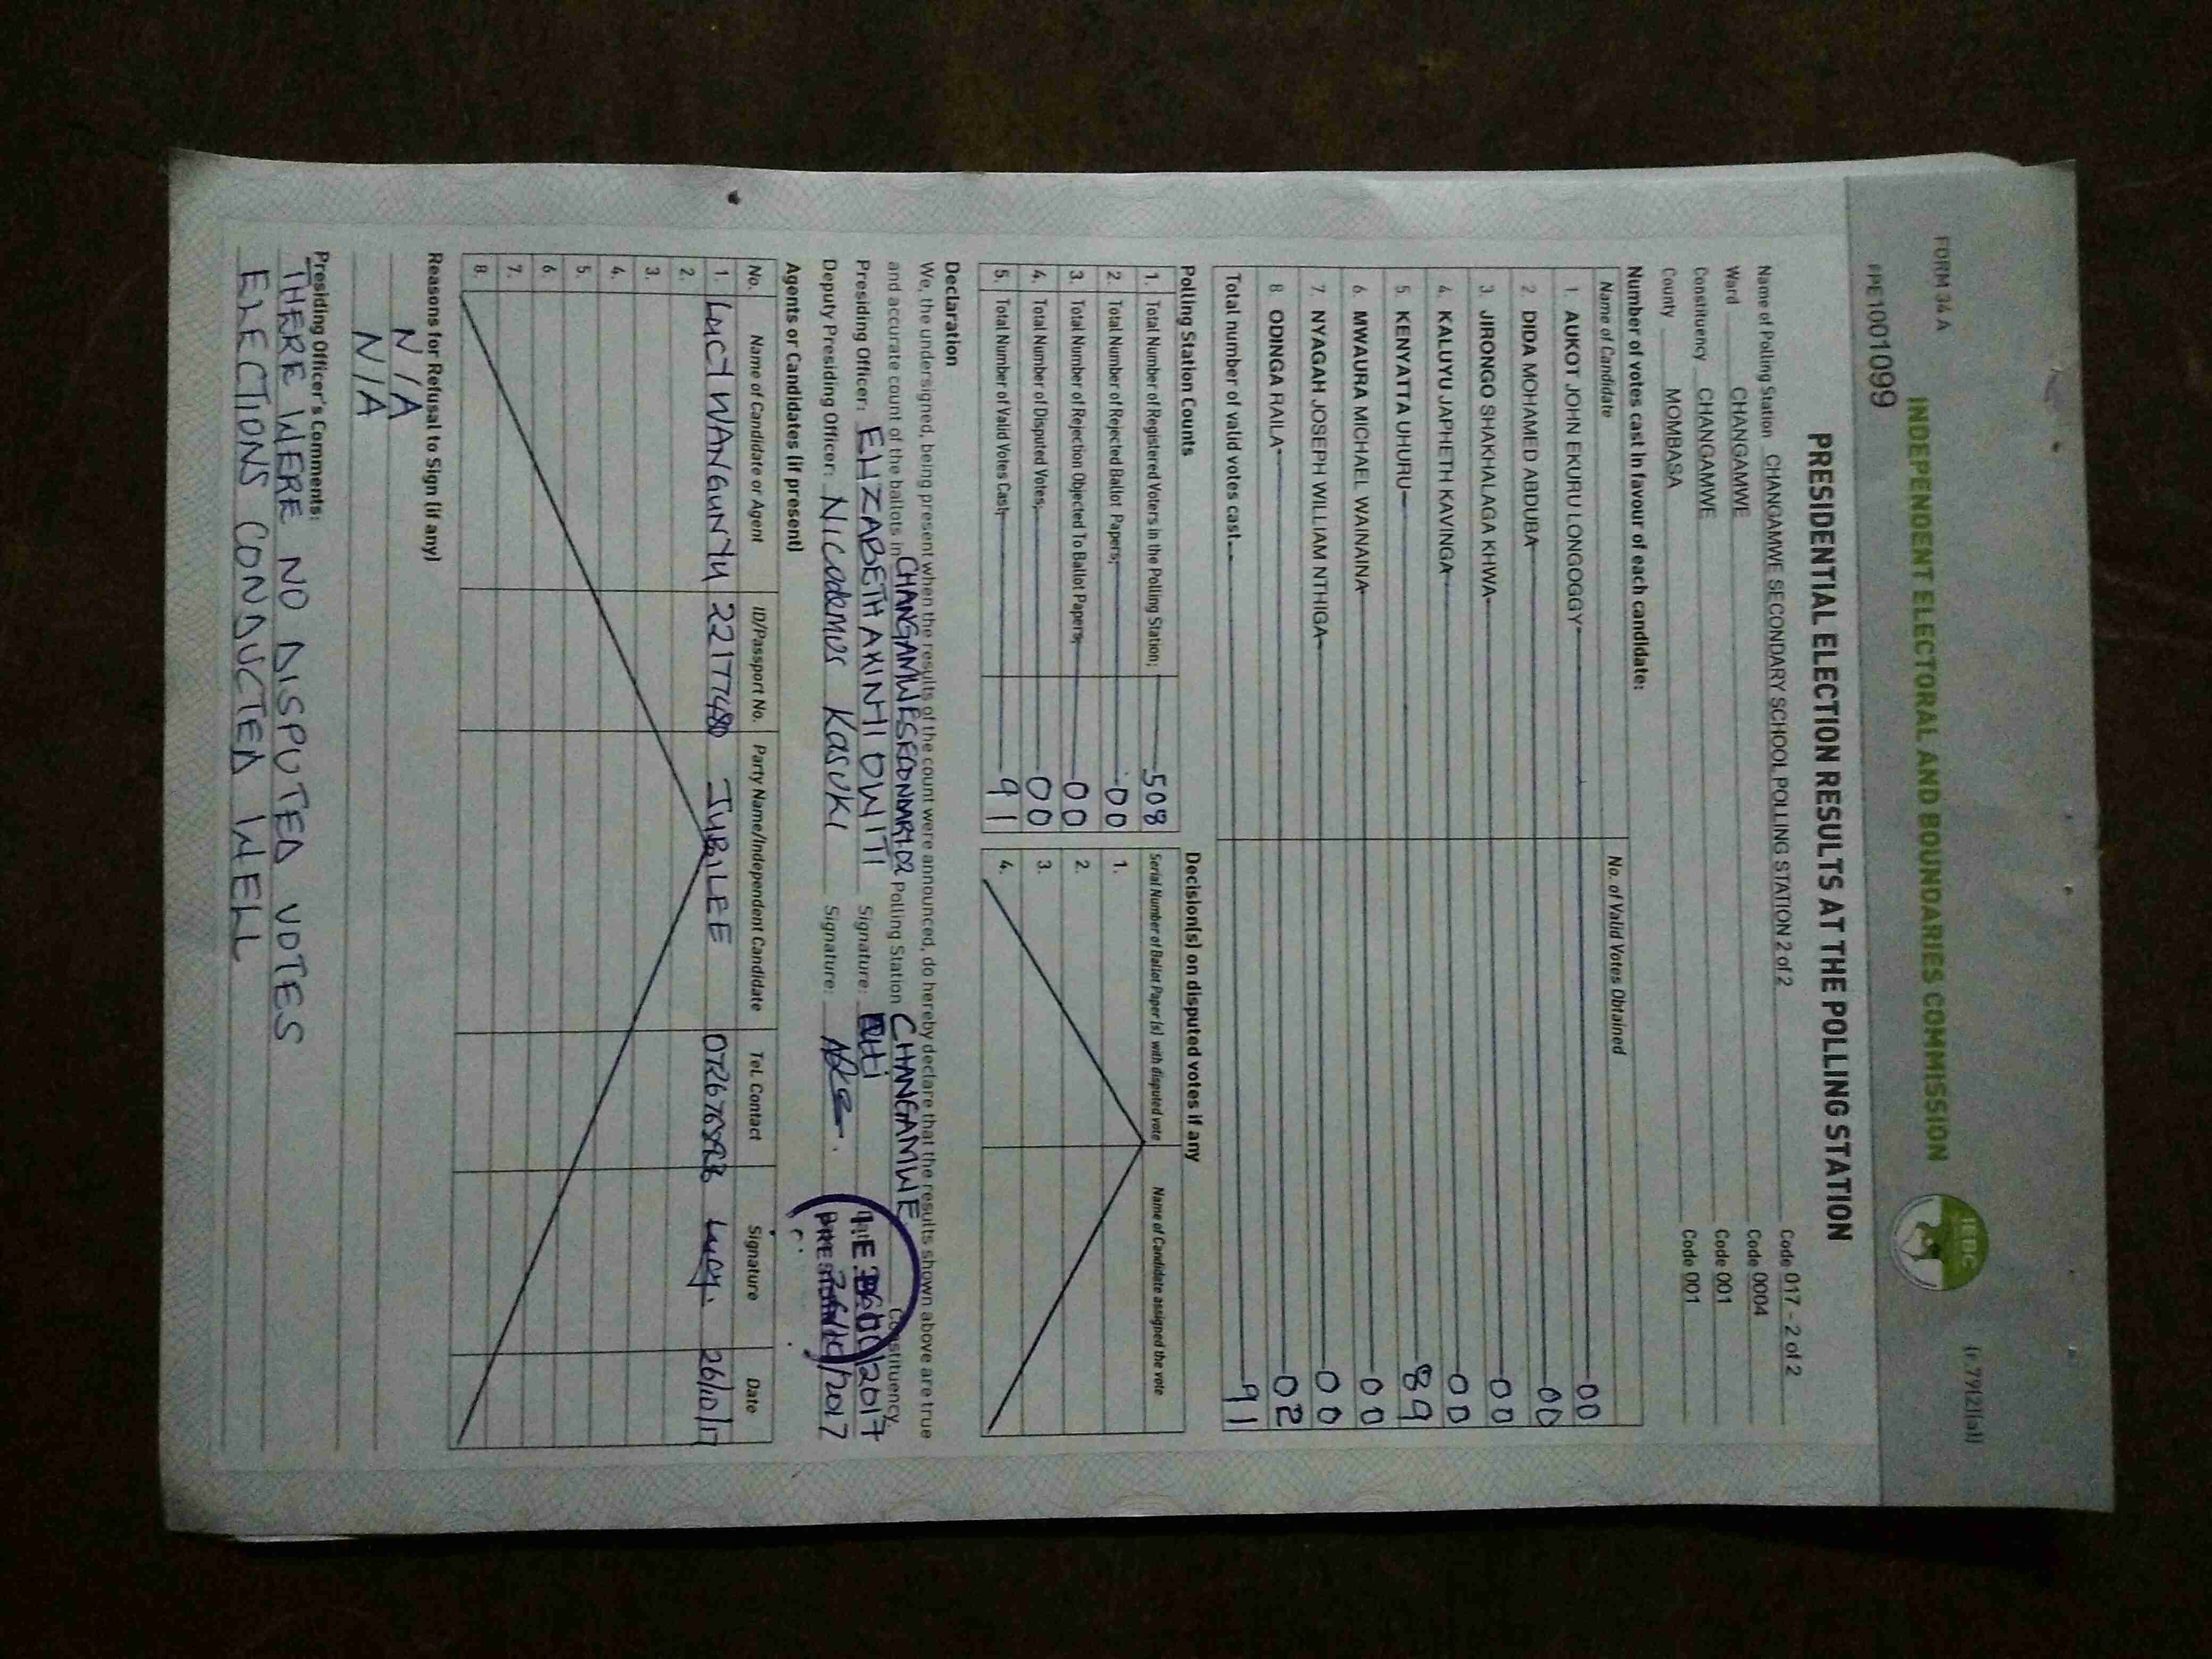 FORM 34 A
(r.79(2)(a))
INDEPENDENT ELECTORAL AND BOUNDARIES COMMISSION
IEBC
PPE1001099
PRESIDENTIAL ELECTION RESULTS AT THE POLLING STATION
Name of Polling Station CHANGAMWE SECONDARY SCHOOL POLLING STATION 2 of 2 Code 017 - 2 of 2
Ward CHANGAMWE Code 0004
Constituency CHANGAMWE Code 001
County MOMBASA Code 001
Number of votes cast in favour of each candidate:
Name of Candidate No. of Valid Votes Obtained
1. AUKOT JOHN EKURU LONGOGGY 00
2. DIDA MOHAMED ABDUBA 00
3. JIRONGO SHAKHALAGA KHWA 00
4. KALUYU JAPHETH KAVINGA 00
5. KENYATTA UHURU 89
6. MWAURA MICHAEL WAINAINA 00
7. NYAGAH JOSEPH WILLIAM NTHIGA 00
8. ODINGA RAILA 02
Total number of valid votes cast 91
Polling Station Counts
1. Total Number of Registered Voters in the Polling Station; 508
2. Total Number of Rejected Ballot Papers; 00
3. Total Number of Rejection Objected To Ballot Papers; 00
4. Total Number of Disputed Votes; 00
5. Total Number of Valid Votes Cast; 91
Decision(s) on disputed votes if any
Serial Number of Ballot Paper (s) with disputed vote Name of Candidate assigned the vote
1.
2.
3.
4.
Declaration
We, the undersigned, being present when the results of the count were announced, do hereby declare that the results shown above are true
and accurate count of the ballots in CHANGAMWE SECONDARY 02 Polling Station CHANGAMWE Constituency.
Presiding Officer: ELIZABETH AKINYI OWITI Signature: 2017
Deputy Presiding Officer: Nicodemus Kasuki Signature: 2017
Agents or Candidates (if present)
No. Name of Candidate or Agent ID/Passport No. Party Name/Independent Candidate Tel. Contact Signature Date
1. LUCY WANGUNYU 22177480 JUBILEE Lucy. 26/10/17
2.
3.
4.
5.
6.
7.
8.
Reasons for Refusal to Sign (if any)
N/A
N/A
Presiding Officer's Comments:
THERE WERE NO DISPUTED VOTES
ELECTIONS CONDUCTED WELL